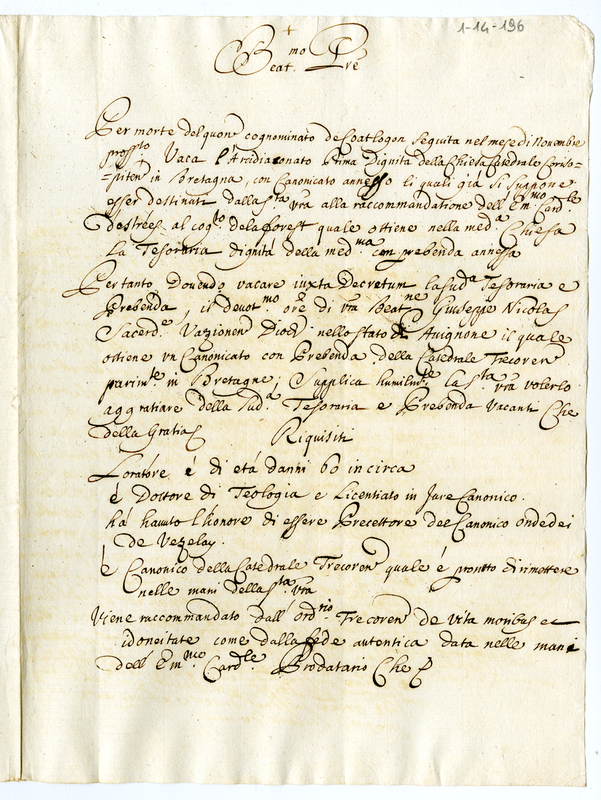 1-14-196
+
Beat.mo Pre
Per morte del quon cognominato de Coatlogon seguita nel mese di Novembre
pross.to Vaca l'Arcidiaconato prima Dignità della Chiesa Catedrale Coriso=
=piten in Bretagna, con Canonicato annesso li quali già si suppone
esser destinati dalla S.ta vra alla raccommandatione dell Em.mo Card.le
destrées al cog.to dela forest quale ottiene nella med.a Chiesa
La Tesoraria dignità della med.ma con prebenda annessa
Pertanto dovendo vacare iuxta Decretum la sud.a Tesoraria e
Prebenda, il devot.mo ore di vra Beat.ne Giuseppe Nicolas
Sacerd.e Vazionen Dioc. nello stato di Avignone il quale
ottiene un Canonicato con Prebenda della Catedrale Trecoren
parim.te in Bretagne; Supplica humilm.te la S.ta vra volerlo
aggratiare della sud.a Tesoraria e Prebenda vacanti Che
della Gratia
Riquisiti
Loratore é di etá danni 60 in circa
é Dottore di Teologia e Licentiato in Jure Canonico.
há havuto l'honore di essere Precettore del Canonico ondedei
de Vezelay.
è Canonico della Catedrale Trecoren quale é pronto di rimettere
nelle mani della S.ta vra
Viene raccommandato dall' ord.rio Trecoren de vita moribus et
idoneitate come dalla fede autentica data nelle mani
dell' Em.mo Card.le Prodatario Che